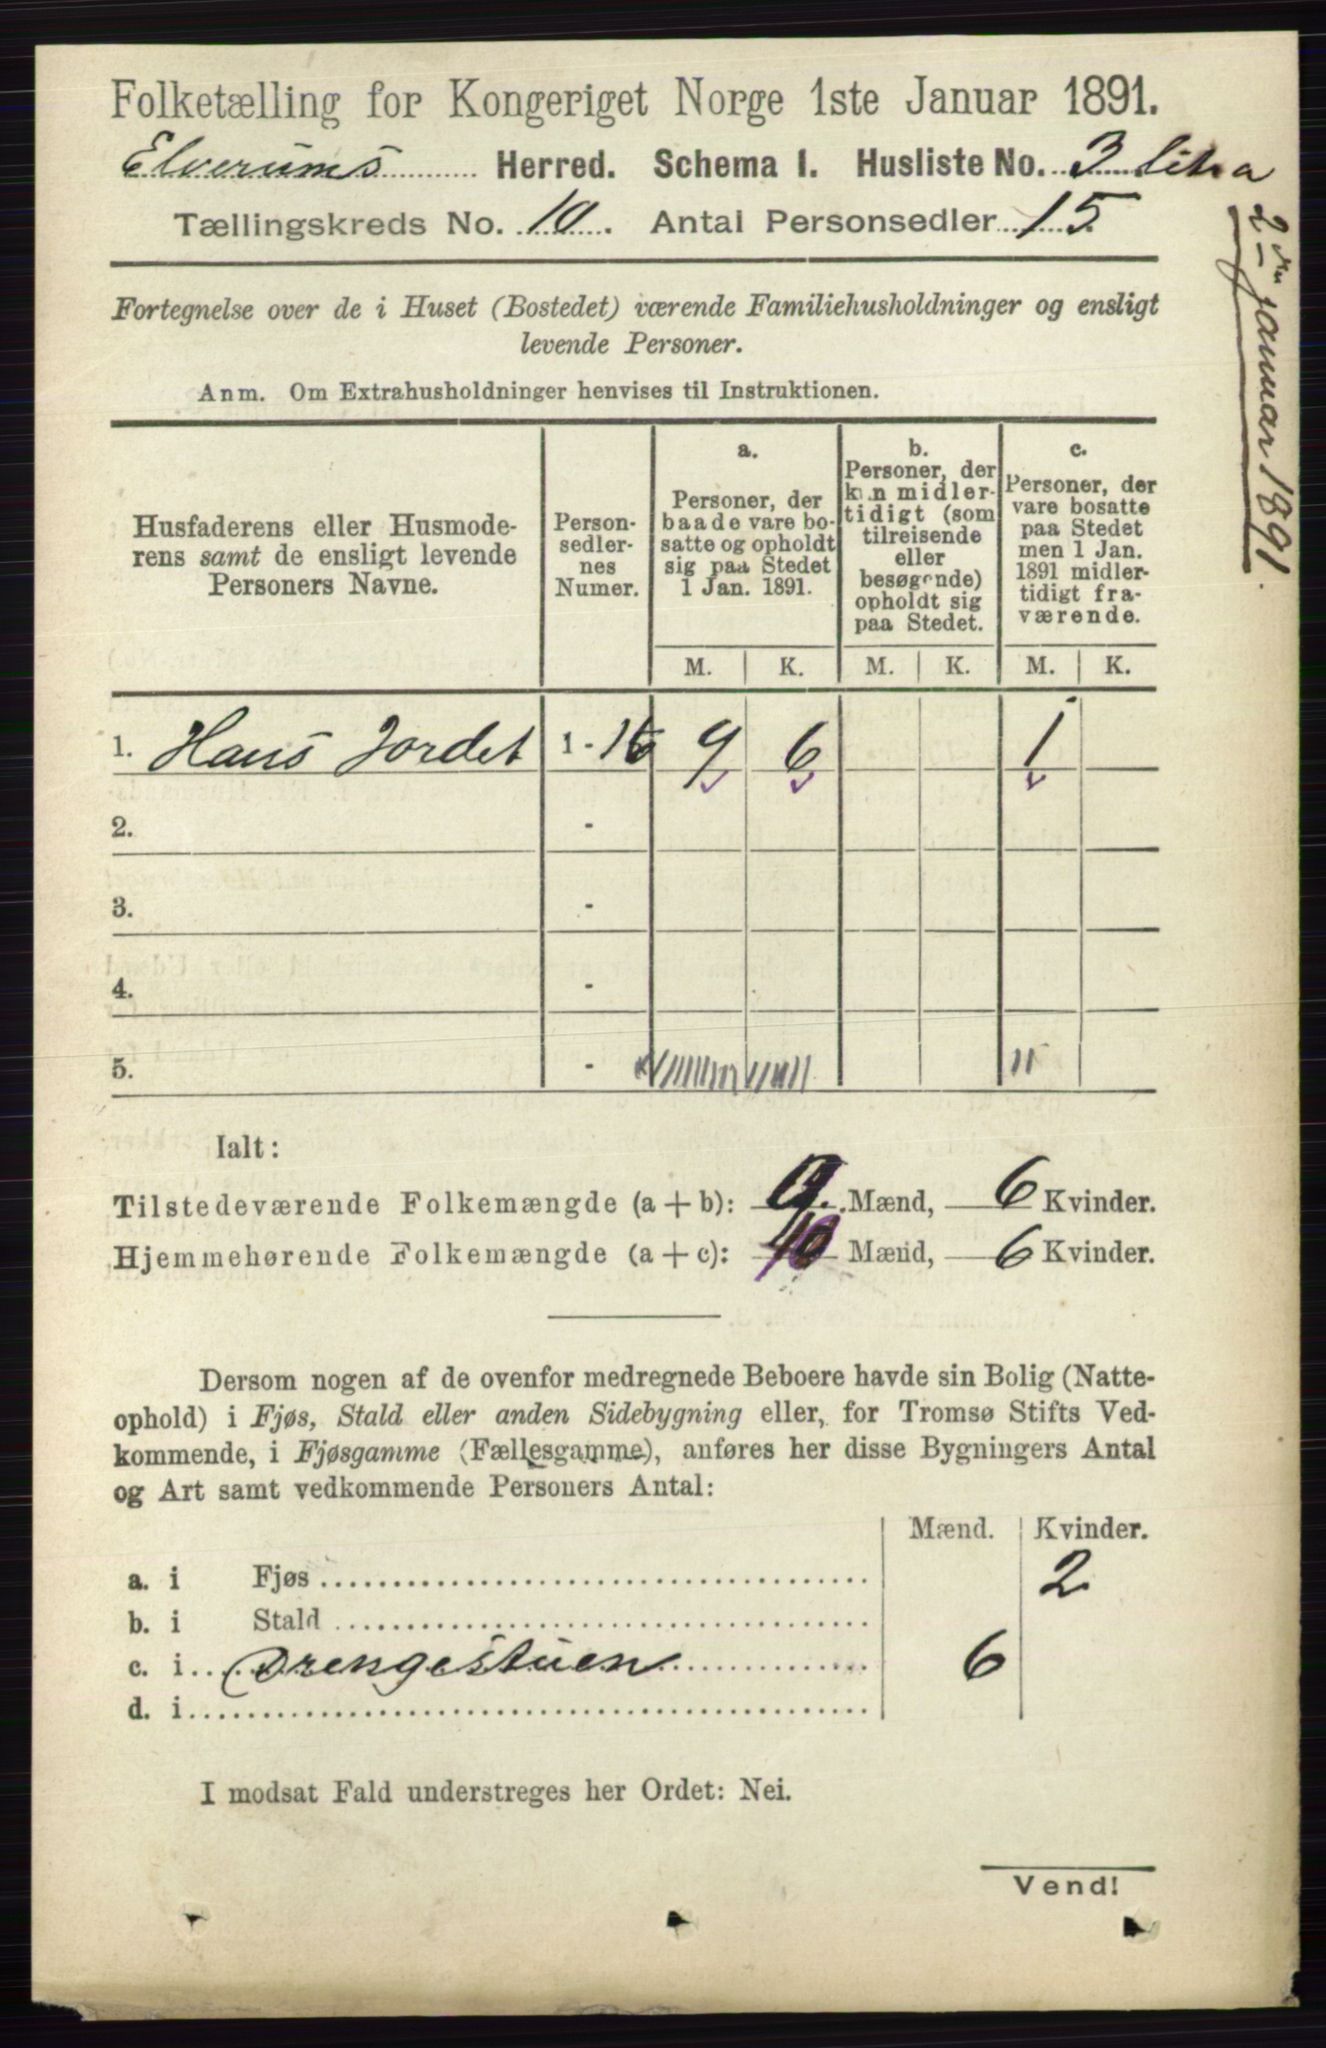 Folketælling for Kongeriget Norge 1ste Januar 1891.
Elverums Herred. Schema I. Husliste No. 3 litra
Tællingskreds No. 10. Antal Personsedler 15
2 januar 1891.
Fortegnelse over de i Huset (Bostedet) værende Familiehusholdninger og ensligt
levende Personer.
Anm. Om Extrahusholdninger henvises til Instruktionen.
Husfaderens eller Husmode-
rens samt de ensligt levende
Personers Navne.
Person-
sedler-
nes
Numer.
a.
Personer, der
baade vare bo-
satte og opholdt
sig paa Stedet
1 Jan. 1891.
b.
Personer, der
kun midler-
tidigt (som
tilreisende
eller
besøgende)
opholdt sig
paa Stedet.
c.
Personer, der
vare bosatte
paa Stedet
men 1 Jan.
1891 midler-
tidigt fra-
værende.
M. K. M. K. M. K.
1. Hans Jordet 1 - 16 9 6 1
2. -
3. -
4. -
5. -
Ialt:
Tilstedeværende Folkemængde (a + b): 9. Mænd, 6 Kvinder.
Hjemmehørende Folkemængde (a + c): 10 Mænd, 6 Kvinder.
Dersom nogen af de ovenfor medregnede Beboere havde sin Bolig (Natte-
ophold) i Fjøs, Stald eller anden Sidebygning eller, for Tromsø Stifts Ved-
kommende, i Fjøsgamme (Fællesgamme), anføres her disse Bygningers Antal
og Art samt vedkommende Personers Antal:
Mænd. Kvinder.
a. i Fjøs 2
b. i Stald
c. i Drengestuen 6
d. i
I modsat Fald understreges her Ordet: Nei.
Vend!